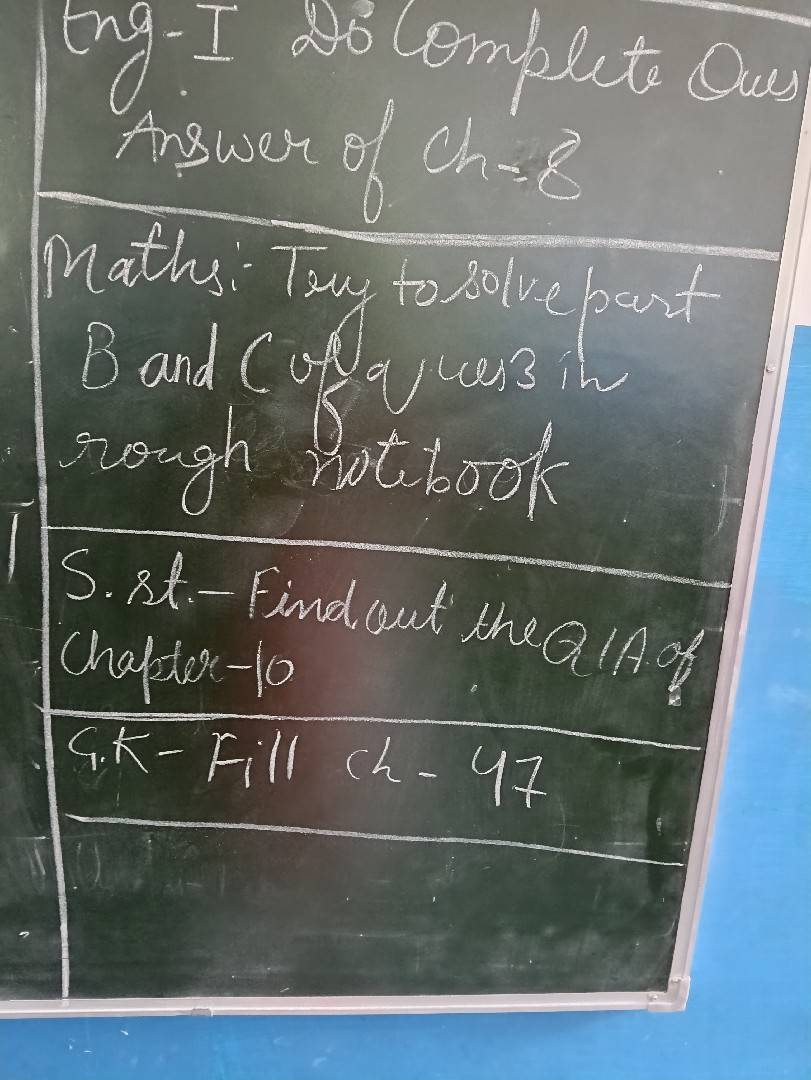 Eng-I Do Complete Ques
Answer of Ch-8
Maths:- Try to solve part
B and C of ques 3 in
rough notebook
S.st.- Find out the Q/A. of
Chapter-10
G.K- Fill ch- 47